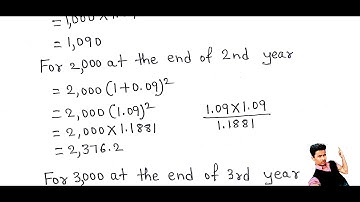 = 1,000 × 1.
= 1,090
For 2,000 at the end of 2nd year
= 2,000 (1+0.09)²
= 2,000 (1.09)²
= 2,000 × 1.1881
= 2,376.2
1.09 × 1.09
1.1881
For 3,000 at the end of 3rd year